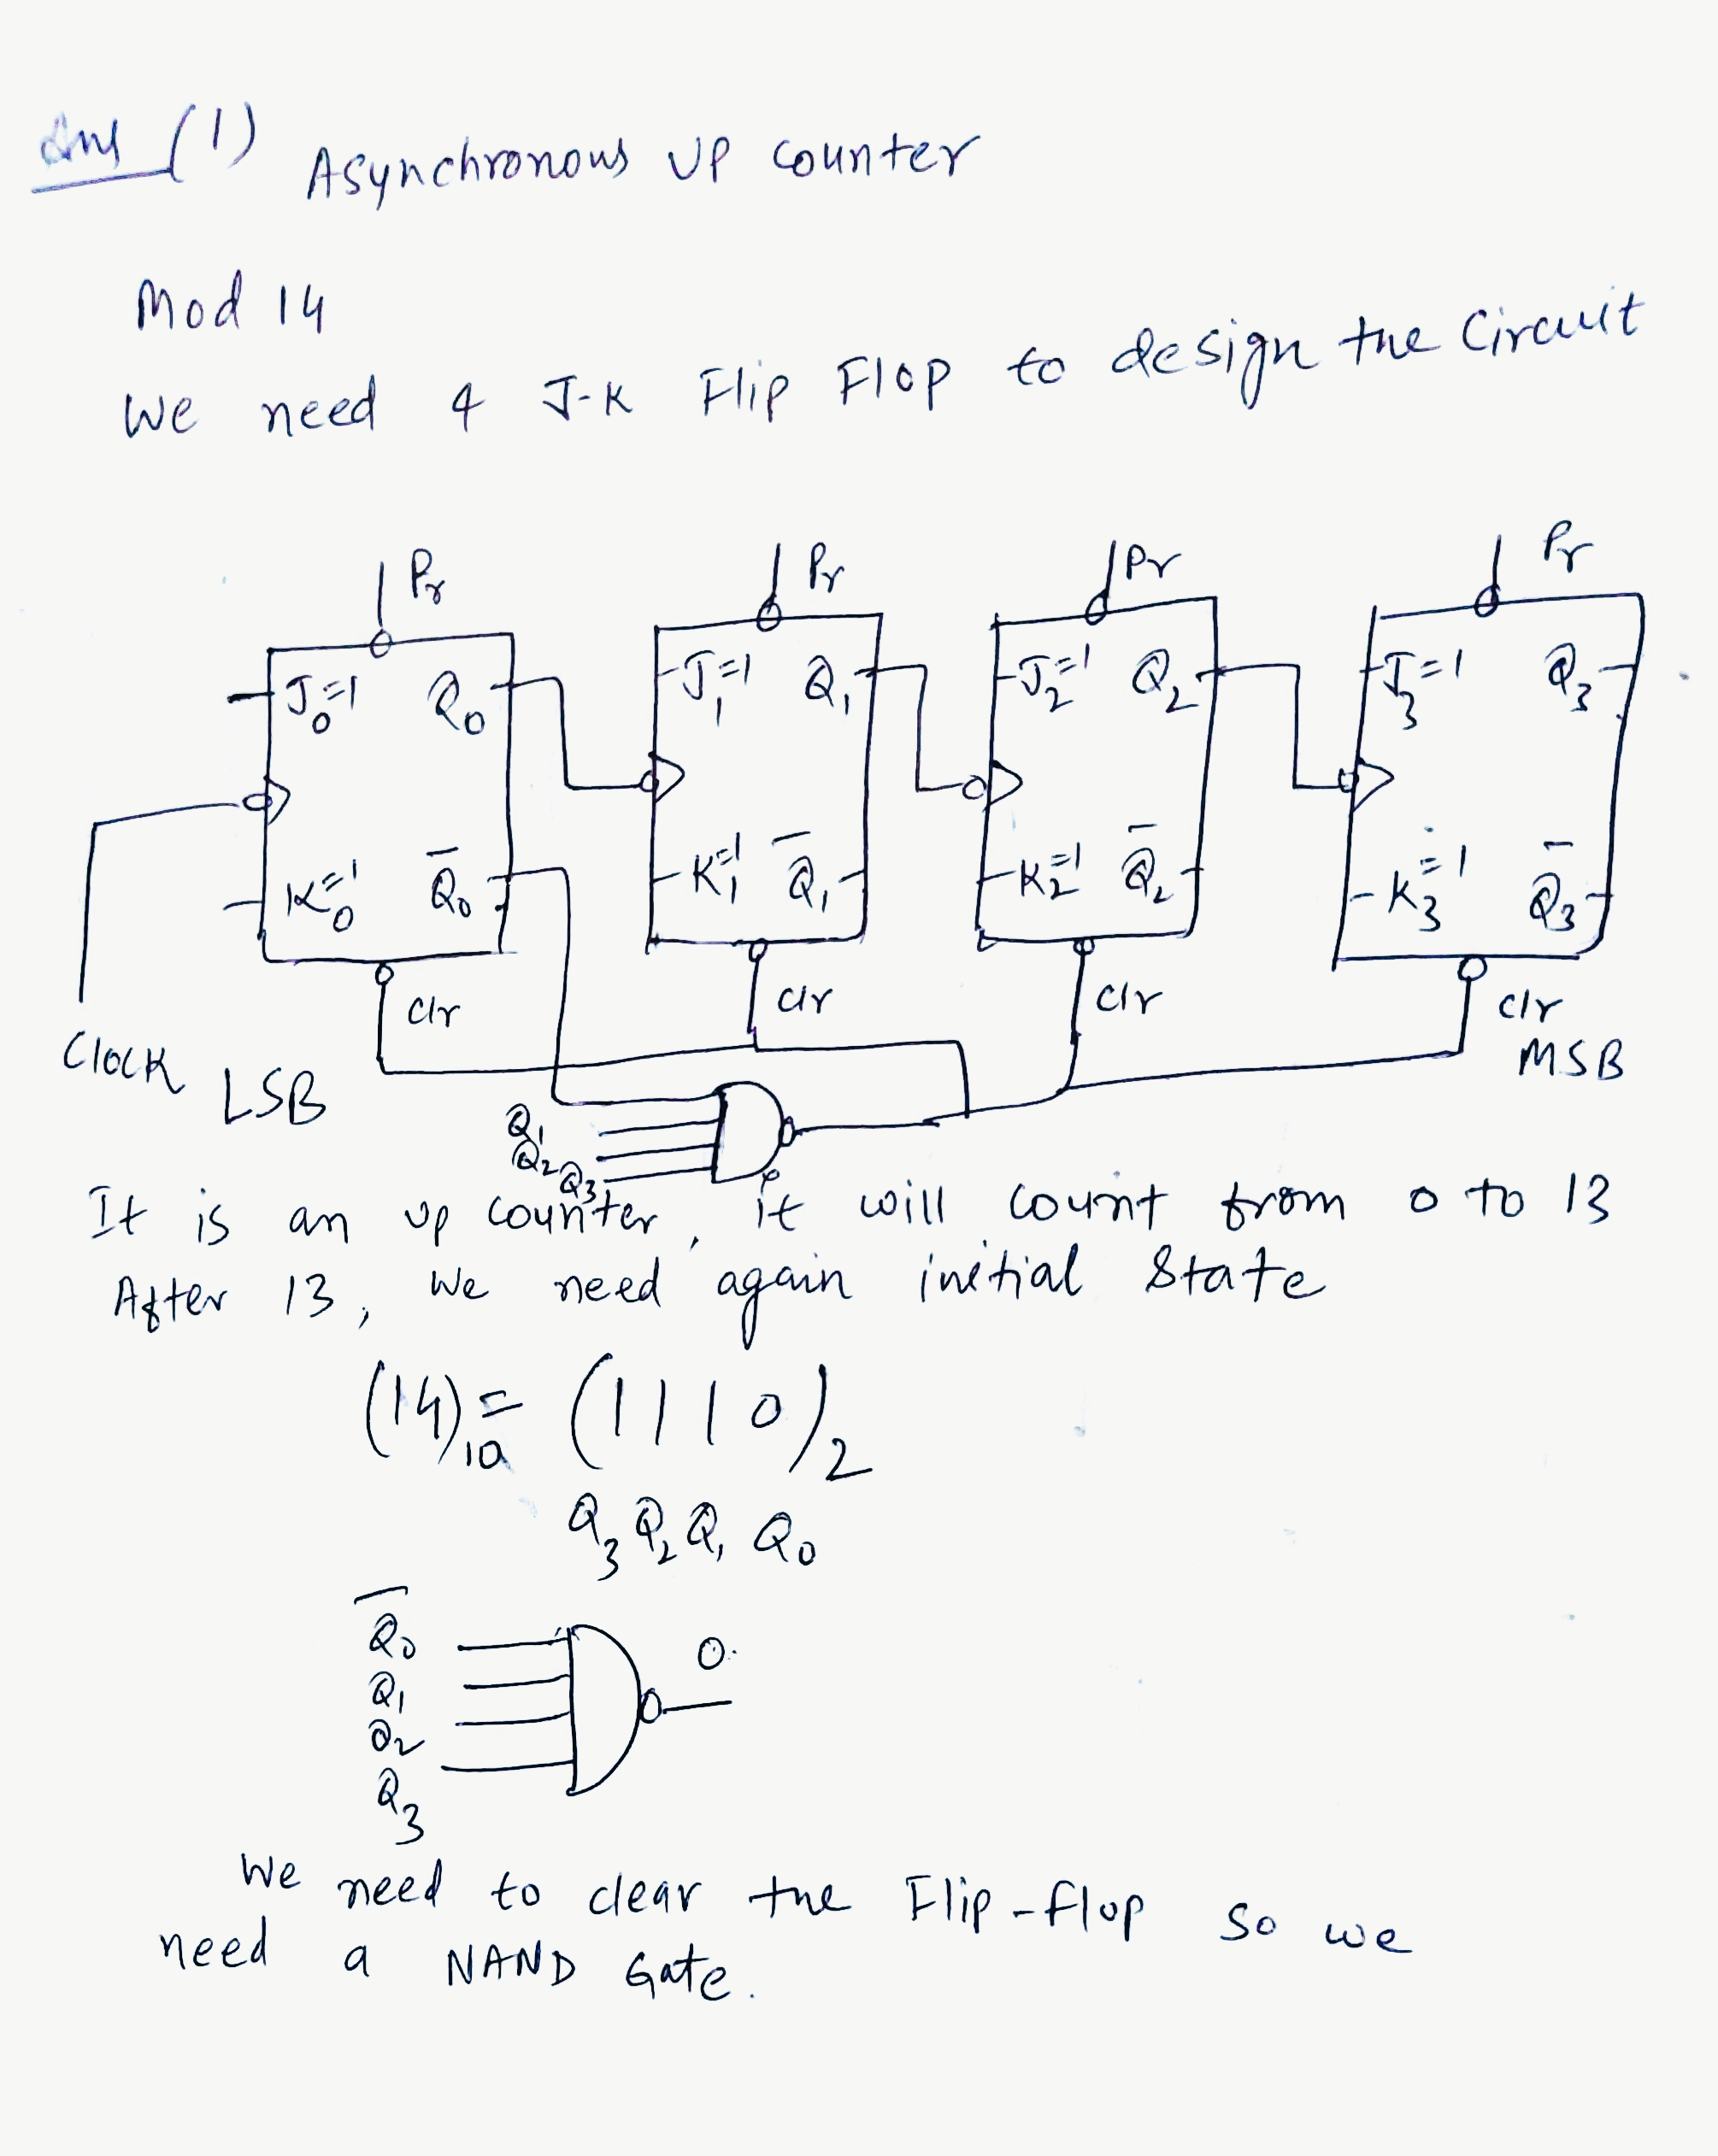 Ans (1) Asynchronous UP Counter
Mod 14
We need 4 J-K Flip Flop to design the Circuit
Pr Pr Pr Pr
J₀=1 Q₀ J₁=1 Q₁ J₂=1 Q₂ J₃=1 Q₃
K₀=1 Q̅₀ K₁=1 Q̅₁ K₂=1 Q̅₂ K₃=1 Q̅₃
Clr Clr Clr Clr
Clock LSB MSB
Q₁
Q₂
Q₃
It is an up counter, it will count from 0 to 13
After 13, We need again initial State
(14)₁₀ = (1110)₂
Q₃ Q₂ Q₁ Q₀
Q̅₀ 0
Q₁
Q₂
Q₃
We need to clear the Flip-flop so we
need a NAND Gate.